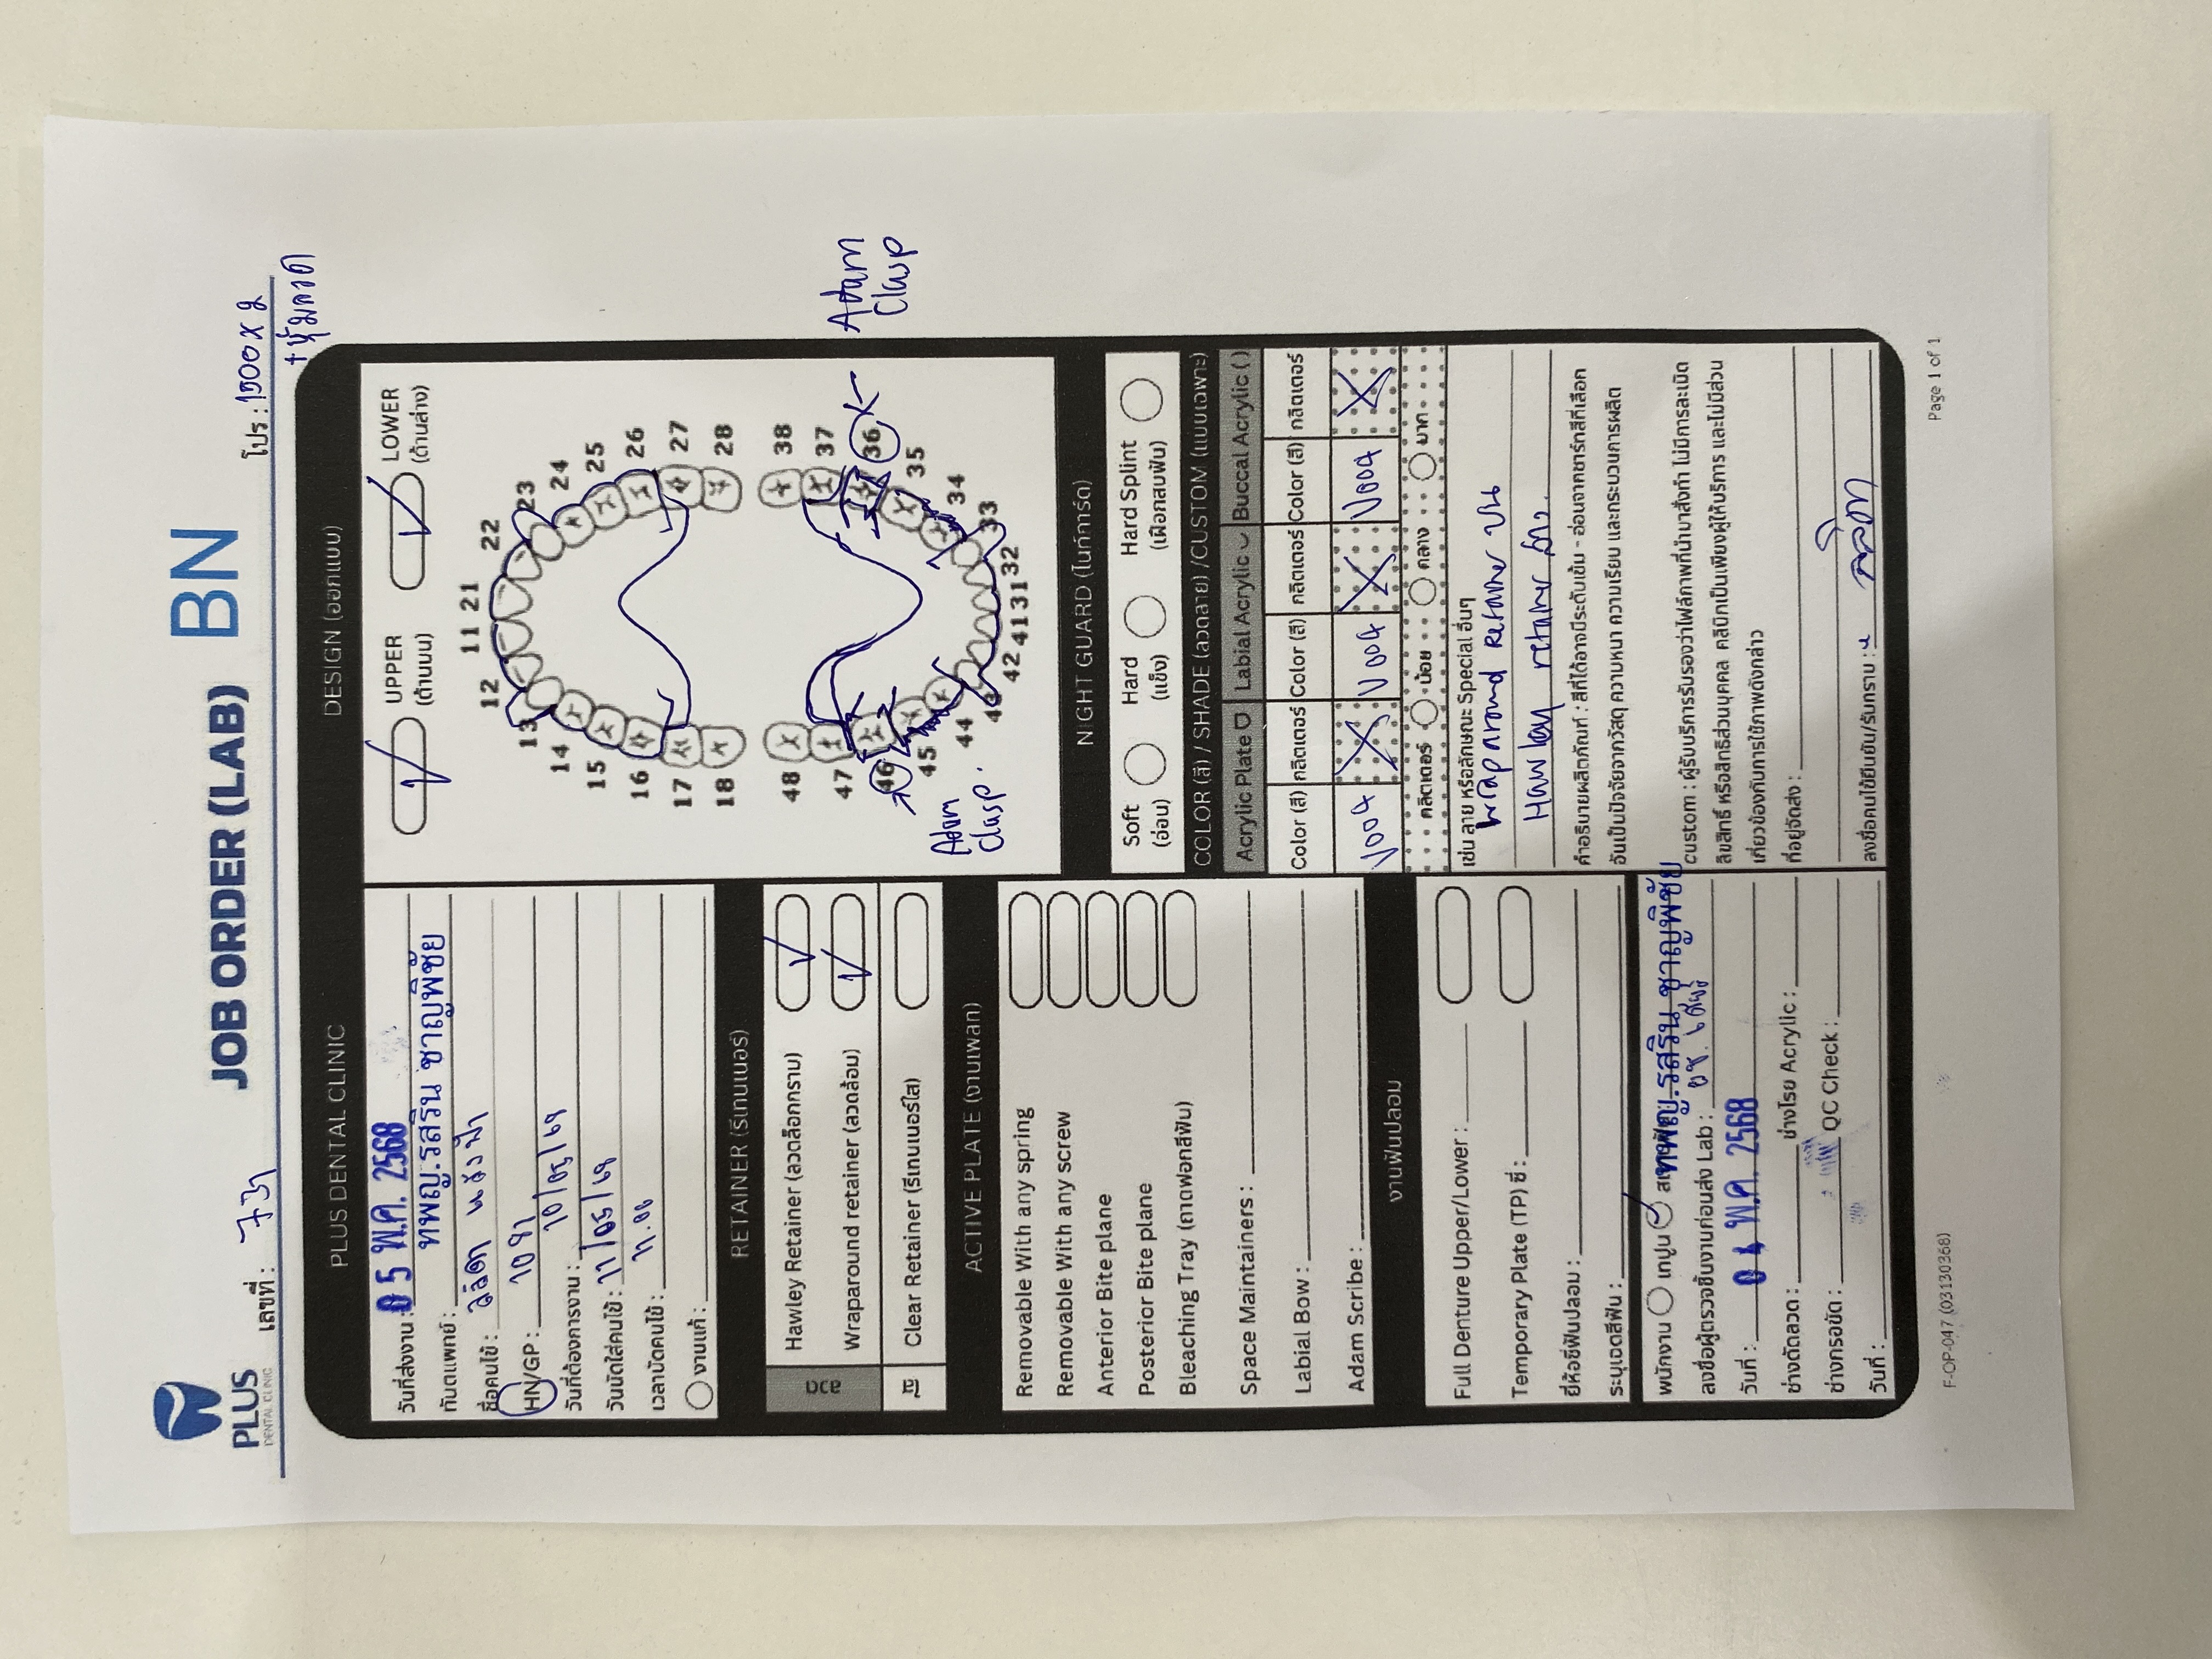 PLUS
DENTAL CLINIC
JOB ORDER (LAB) BN
เลขที่ : 731
โปร : 1500 x 2
+ หุ้มลวด
PLUS DENTAL CLINIC
วันที่ส่งงาน : 05 พ.ค. 2568
ทันตแพทย์ : ทพญ.รสริน ชาญพิชัย
ชื่อคนไข้ : ลลิดา
HN/GP : 1091
วันที่ต้องการงาน : 10/05/68
วันนัดใส่คนไข้ : 11/05/68
เวลานัดคนไข้ : 11.00
งานแก้ :
RETAINER (รีเทนเนอร์)
ลวด
Hawley Retainer (ลวดล็อกกราม)
Wraparound retainer (ลวดล้อม)
ใส
Clear Retainer (รีเทนเนอร์ใส)
ACTIVE PLATE (งานเพลท)
Removable With any spring
Removable With any screw
Anterior Bite plane
Posterior Bite plane
Bleaching Tray (ถาดฟอกสีฟัน)
Space Maintainers :
Labial Bow :
Adam Scribe :
งานฟันปลอม
Full Denture Upper/Lower :
Temporary Plate (TP) ซี่ :
ยี่ห้อซี่ฟันปลอม :
ระบุเฉดสีฟัน :
พนักงาน เทปูน ทพญ.รสริน ชาญพิชัย
ลงชื่อผู้ตรวจชิ้นงานก่อนส่ง Lab :
วันที่ : 04 พ.ค. 2568
ช่างดัดลวด : ช่างโรย Acrylic :
ช่างกรอขัด : QC Check :
วันที่ :
DESIGN (ออกแบบ)
UPPER
(ด้านบน)
LOWER
(ด้านล่าง)
11 21
12 22
13 23
14 24
15 25
16 26
17 27
18 28
48 38
47 37
46 36
Adam
Clasp
45 35
Adam
Clasp.
44 34
43 33
42 41 31 32
NIGHT GUARD (ไนท์การ์ด)
Soft
(อ่อน)
Hard
(แข็ง)
Hard Splint
(เฝือกสบฟัน)
COLOR (สี) / SHADE (ลวดลาย) /CUSTOM (แบบเฉพาะ)
Acrylic Plate Labial Acrylic Buccal Acrylic ( )
Color (สี) กลิตเตอร์ Color (สี) กลิตเตอร์ Color (สี) กลิตเตอร์
V004 X V004 X V004 X
กลิตเตอร์ น้อย กลาง มาก
เช่น ลาย หรือลักษณะ Special อื่นๆ
Wraparound retainer บน
Hawley retainer ล่าง.
คำอธิบายผลิตภัณฑ์ : สีที่ได้อาจมีระดับเข้ม - อ่อนจากชาร์ทสีที่เลือก
อันเป็นปัจจัยจากวัสดุ ความหนา ความเรียบ และกระบวนการผลิต
custom : ผู้รับบริการรับรองว่าไฟล์ภาพที่นำมาสั่งทำ ไม่มีการละเมิด
ลิขสิทธิ์ หรือสิทธิส่วนบุคคล คลินิกเป็นเพียงผู้ให้บริการ และไม่มีส่วน
เกี่ยวข้องกับการใช้ภาพดังกล่าว
ที่อยู่จัดส่ง :
ลงชื่อคนไข้ยืนยัน/รับทราบ : ลลิดา
F-OP-047 (03130368)
Page 1 of 1